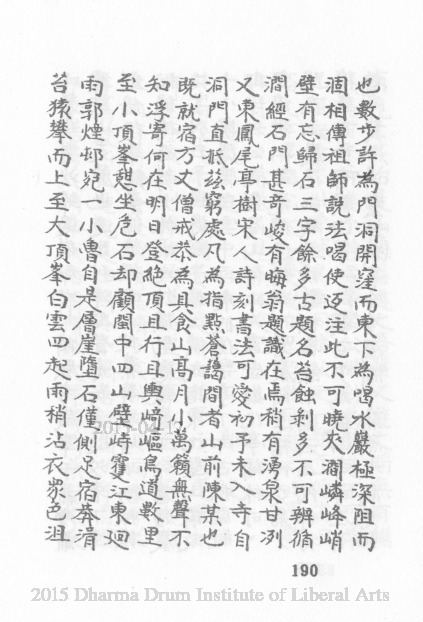 也數步許為門洞開窪而東下為喝水巖極深阻而
涸相傳祖師說法喝使逆注此不可曉夾澗嶙峰峭
壁有忘歸石三字餘多古題名苔蝕剝多不可辨循
澗經石門甚奇峻有晦翁題識在焉稍有湧泉甘冽
又東鳳尾亭樹宋人詩刻書法可愛初予未入寺自
洞門直抵茲窮處凡為指點蒼藹間者山前陳某也
既就宿方丈僧戒恭為具食山高月小萬籟無聲不
知浮寄何在明日登絕頂且行且輿﨑嶇鳥道數里
至小頂峯憩坐危石却顧閩中四山壁峙雙江東迴
雨郭煙邨宛一小曹自是層崖墮石僅側足宿莽滑
苔猿攀而上至大頂峯白雲四起雨梢沾衣衆色沮
190
2015 Dharma Drum Institute of Liberal Arts